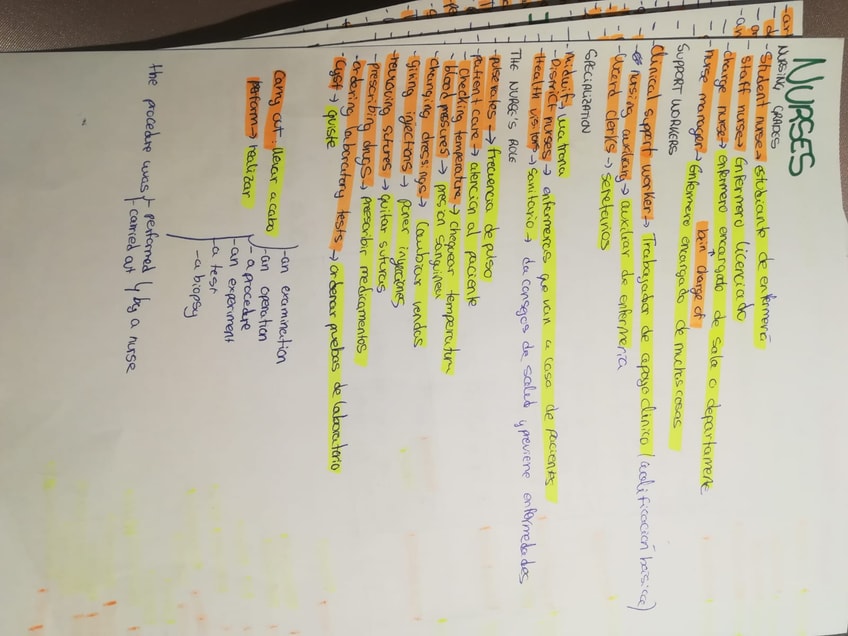 NURSES
NURSING GRADES
- Student nurse → estudiante de enfermería
- staff nurse → Enfermero licenciado
- charge nurse → enfermero encargado de sala o departamento
in charge of
- nurse manager → Enfermero encargado de muchas cosas
SUPPORT WORKERS
- Clinical support worker → Trabajador de apoyo clínico (cualificación básica)
- nursing auxiliary → auxiliar de enfermería
- Ward clerks → secretarios
SPECIALIZATION
- midwife matrona
- District nurses → enfermeros que van a casa de pacientes
- Health visitors → sanitario → da consejos de salud y previene enfermedades
THE NURSE'S ROLE
- pulse rates → frecuencia de pulso
- patient care → atención al paciente
- Checking temperature → chequear temperatura
- blood pressures → presión sanguínea
- changing dressings → cambiar vendas
- giving injections → poner inyecciones
- removing sutures → quitar suturas
- prescribing drugs → prescribir medicamentos
- ordering laboratory tests → ordenar pruebas de laboratorio
- Cyst → quiste
carry out: llevar a cabo
perform → realizar
- an examination
- an operation
- a procedure
- an experiment
- a test
- a biopsy
the procedure was performed
carried out by a nurse